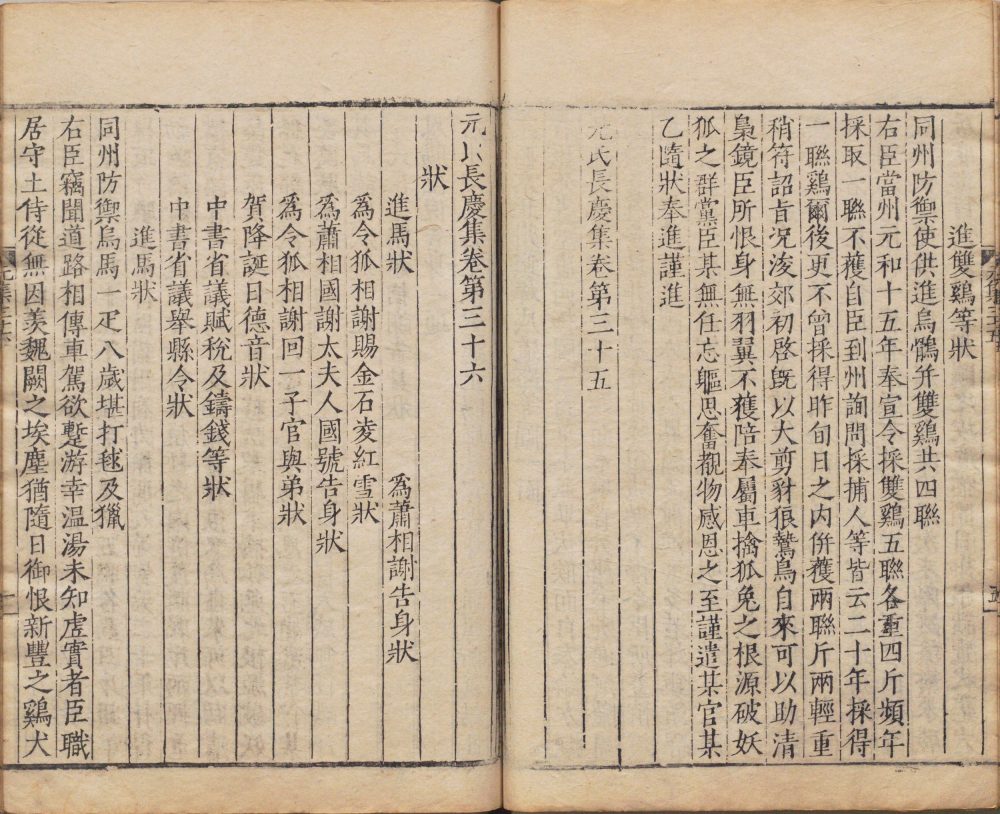 進雙鷄等狀
同州防禦使供進烏鶻并雙鷄共四聯
右臣當州元和十五年奉宣令採雙鷄五聯各重四斤頻年
採取一聯不獲自臣到州詢問採捕人等皆云二十年採得
一聯鷄爾後更不曾採得昨旬日之内併獲兩聯斤兩輕重
稍符詔旨况浚郊初啓旣以大剪豺狼鷙鳥自來可以助清
梟鏡臣所恨身無羽翼不獲陪奉屬車擒狐兔之根源破妖
狐之群黨臣某無任忘軀思奮觀物感恩之至謹遣某官某
乙隨狀奉進謹進
元氏長慶集卷第三十五
元氏長慶集卷第三十六
狀
進馬狀 爲蕭相謝告身狀
爲令狐相謝賜金石凌紅雪狀
爲蕭相國謝太夫人國號告身狀
爲令狐相謝回一子官與弟狀
賀降誕日德音狀
中書省議賦稅及鑄錢等狀
中書省議舉縣令狀
進馬狀
同州防禦烏馬一疋八歲堪打毬及獵
右臣竊聞道路相傳車駕欲蹔游幸温湯未知虛實者臣職
居守土侍從無因羨魏闕之埃塵猶隨日御恨新豐之鷄犬